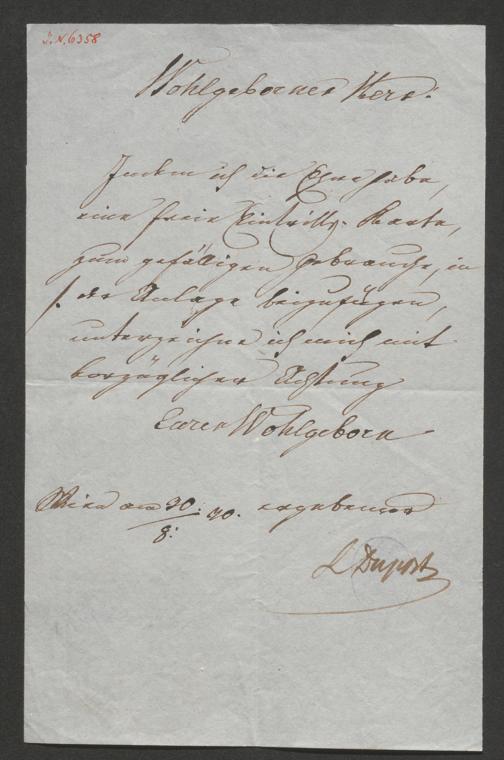 J.N. 6358
Wohlgeborner Herr.
Indem ich die Ehre habe,
eine freie Eintritts-Karte,
zum gefälligen Gebrauche, in
/. der Anlage beizufügen,
unterzeichne ich mich mit
vorzüglicher Achtung
Euer Wohlgeborn
Wien am 30/8: 40. ergebener
L Duport